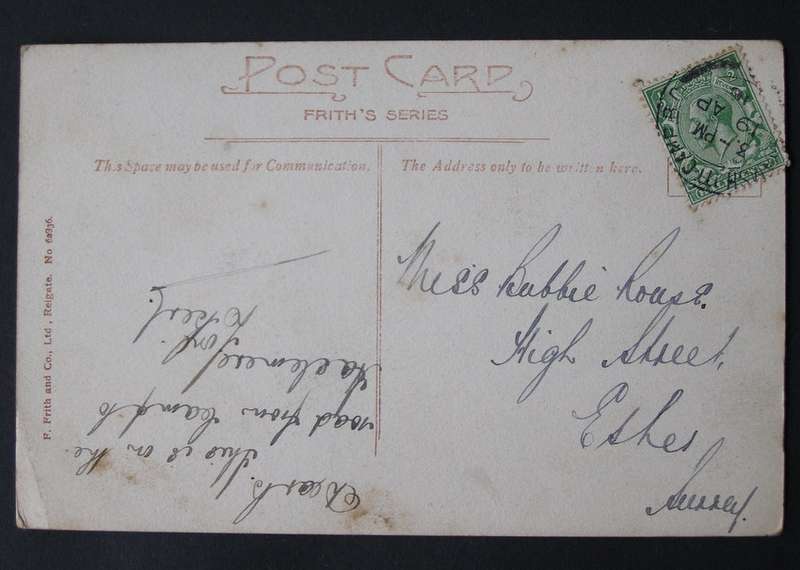 POST CARD
FRITH'S SERIES
This Space may be used for Communication.
The Address only to be written here.
PM
AP
F. Frith and Co., Ltd., Reigate. No 68936.
Dear B. This is on the
road from Camp to
Haslemere
Miss Babbie Rouse.
High Street,
Esher
Surrey.